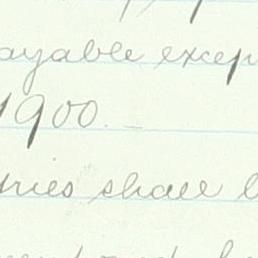 ayable excep
1900.
ries shall